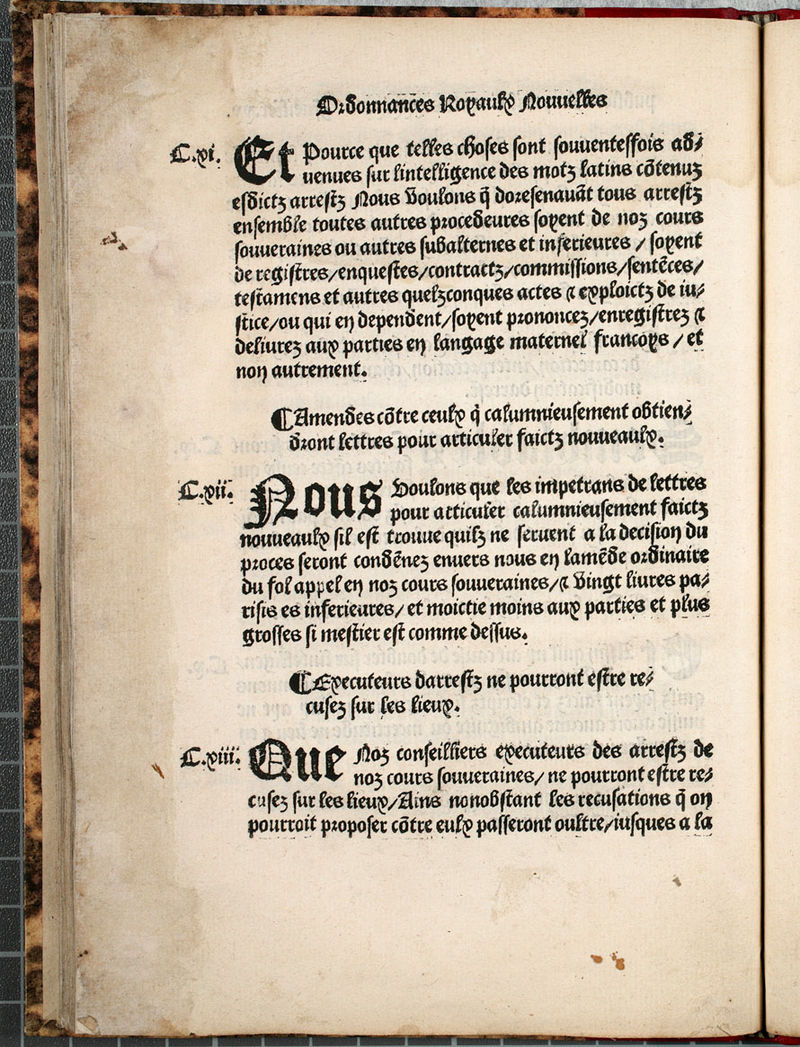 Ordonnances Royaulx Nouuelles
C.xi.
Et Pource que telles choses sont souuentesfois ad⸗
uenues sur lintelligence des motz latins cõtenuz
esdictz arrestz Nous Voulons q̃ doresenauãt tous arrestz
ensemble toutes autres procedeures soyent de noz cours
souueraines ou autres subalternes et inferieures / soyent
de registres/enquestes/contractz/commissions/sentẽces/
testamens et autres quelzconques actes ⁊ exploictz de iu⸗
stice/ou qui en dependent/soyent prononcez/enregistrez ⁊
deliurez aux parties en langage maternel francoys / et
non autrement.
¶Amendes cõtre ceulx q̃ calumnieusement obtien⸗
dront lettres pour articuler faictz nouueaulx.
C.xii.
Nous Voulons que les impetrans de lettres
pour articuler calumnieusement faictz
nouueaulx sil est trouue quilz ne seruent a la decision du
proces seront condẽnez enuers nous en lamẽde ordinaire
du fol appel en noz cours souueraines/⁊ Vingt liures pa⸗
risis es inferieures/ et moictie moins aux parties et plus
grosses si mestier est comme dessus.
¶Executeurs darrestz ne pourront estre re⸗
cusez sur les lieux.
C.xiii.
Que Noz conseilliers executeurs des arrestz de
noz cours souueraines/ ne pourront estre re⸗
cusez sur les lieux/Ains nonobstant les recusations q̃ on
pourroit proposer cõtre eulx passeront oultre/iusques a la